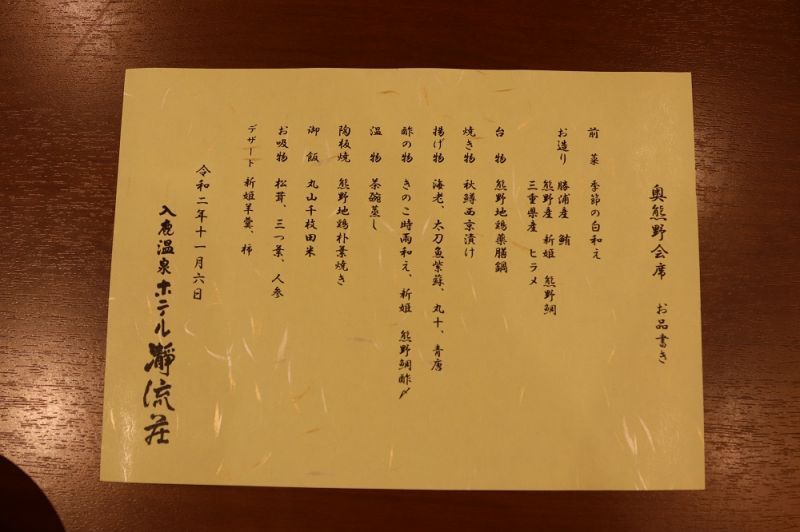 奥熊野会席　お品書き
前　菜　季節の白和え
お造り　勝浦産　鮪
熊野産　新姫　熊野鯛
三重県産　ヒラメ
台　物　熊野地鶏薬膳鍋
焼き物　秋鱒西京漬け
揚げ物　海老、太刀魚紫蘇、丸十、青唐
酢の物　きのこ時雨和え、新姫　熊野鯛酢〆
温　物　茶碗蒸し
陶板焼　熊野地鶏朴葉焼き
御　飯　丸山千枚田米
お吸物　松茸、三つ葉、人参
デザート　新姫羊羹、柿
令和二年十一月六日
入鹿温泉ホテル瀞流荘